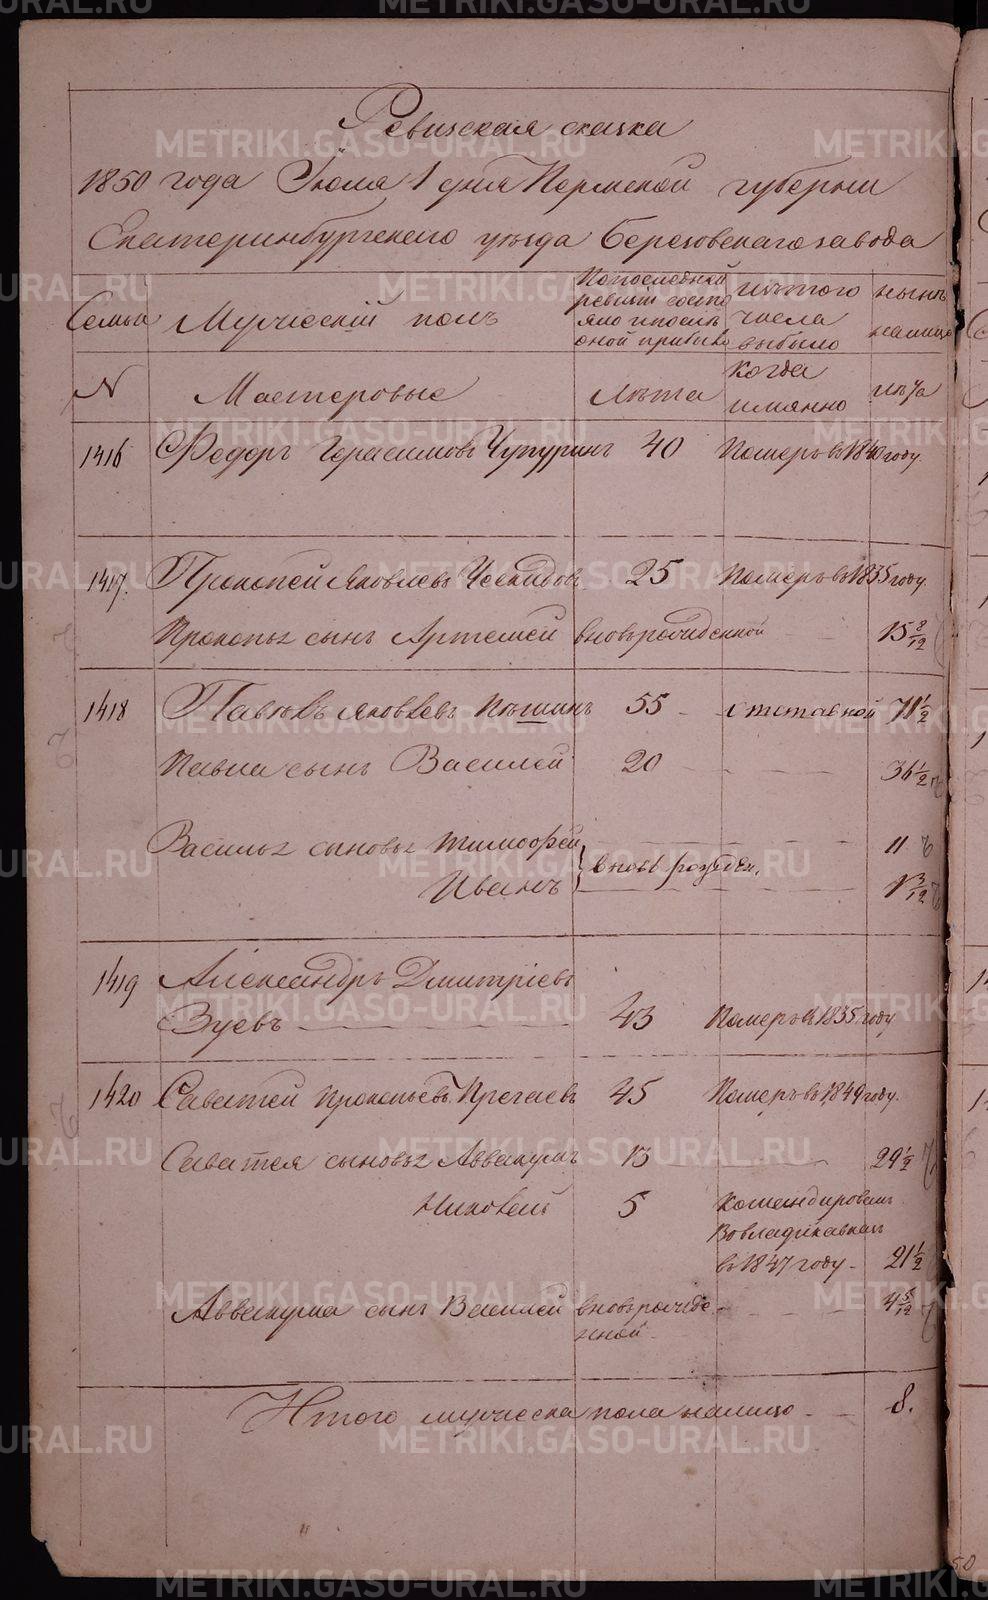 Ревизская сказка
1850 года Іюля 1 дня Пермской губерніи
Екатеринбургскаго уезда Березовскаго завода
Семьи
Мужескій полъ
По последней ревизіи состояло и после оной прибыло
Изъ того числа выбыло
Ныне налицо
N
Мастеровые
Лета
Когда имянно
Лета
1416 Федоръ Герасимовъ Чупуринъ 40 Померъ въ 1840 году.
1417. Прокопей Яковлевъ Ческидовъ 25 Померъ въ 1835 году.
Прокопья сынъ Артемей вновьрожденной 15 8/12
1418 Павелъ Яковлевъ Пешинъ 55 отставной 71 1/2
Павла сынъ Василей 20 36 1/2
Василья сыновья Тимофей 11
Иванъ } вновь рожден. 1 3/12
1419 Александръ Дмитріевъ
Зуевъ 43 Померъ въ 1835 году
1420 Саватей Прокопьевъ 45 Померъ въ 1849 году.
Саватея сыновья Аввакумъ 13 29 1/2
Николай 5 Командированъ
Во владикавказ
въ 1847 году 21 1/2
Аввакума сынъ Василей вновьрожде- 4 5/12
нной
Итого мужеска пола налицо 8.
METRIKI.GASO-URAL.RU